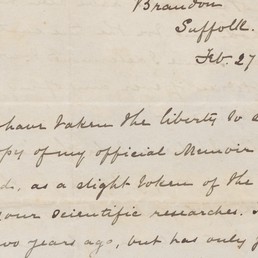 Brandon
Suffolk.
Feb. 27
have taken the liberty to
copy of my official Memoir
as a slight token of the
your scientific researches.
years ago, but has only